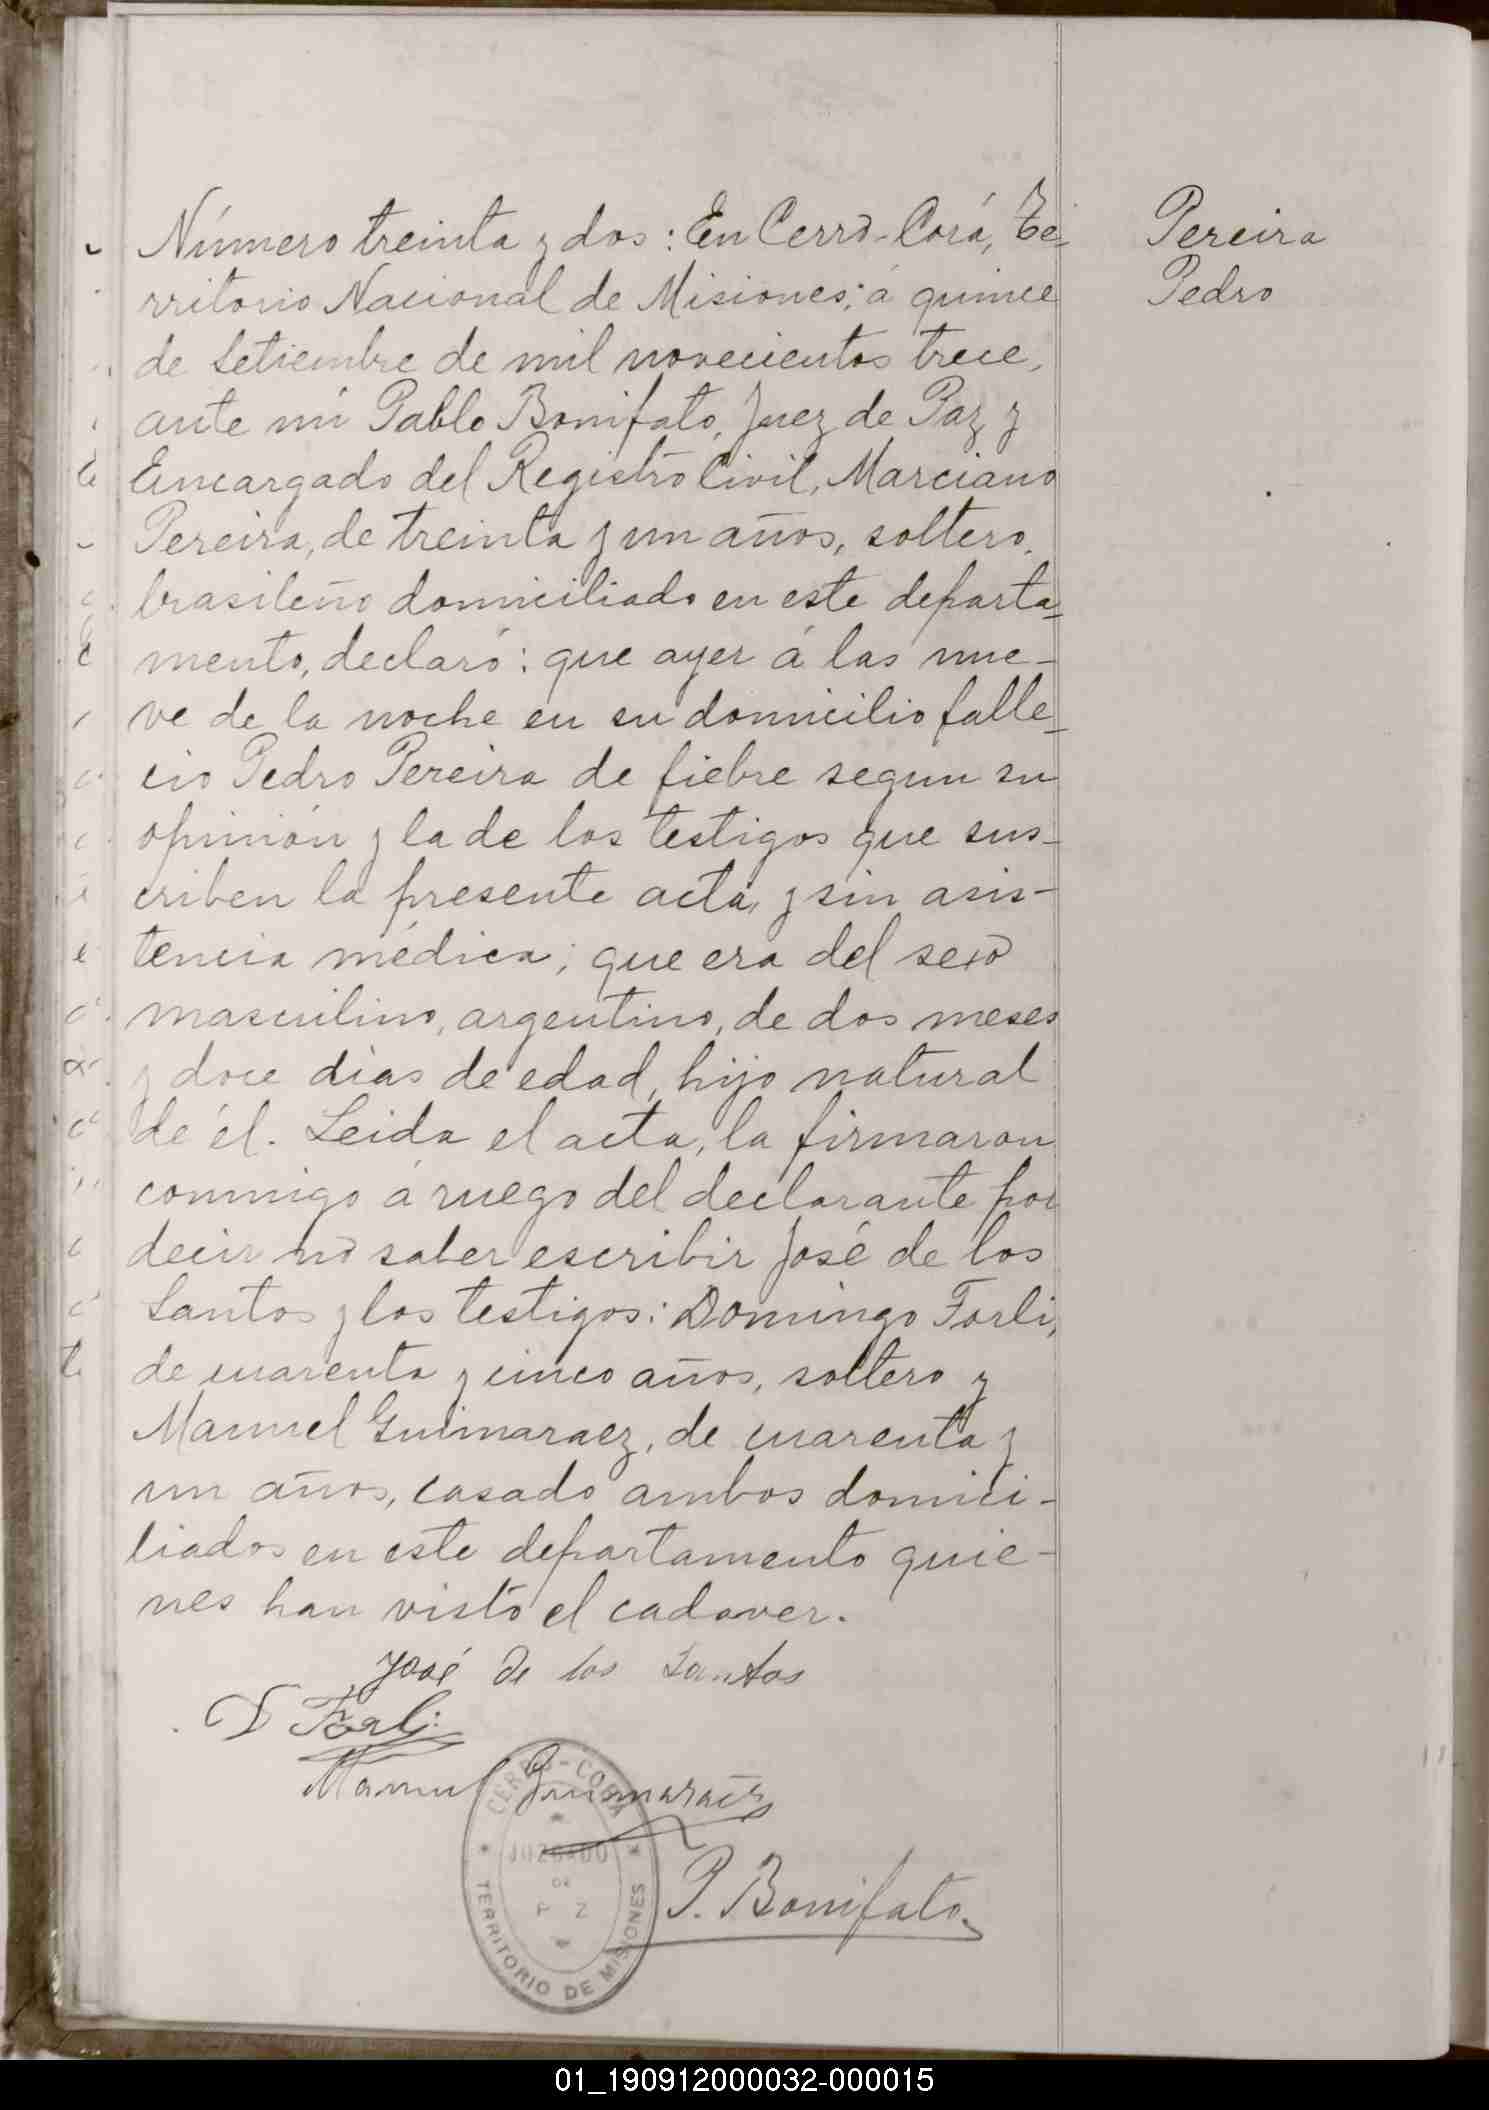 Número treinta y dos: En Cerro-Corá, Te-
rritorio Nacional de Misiones; á quince
de Setiembre de mil novecientos trece,
ante mi Pablo Bonifato, Juez de Paz y
Encargado del Registro Civil, Marciano
Pereira, de treinta y un años, soltero,
brasileño domiciliado en este departa-
mento, declaró: que ayer á las nue-
ve de la noche en su domicilio falle-
cio Pedro Pereira de fiebre segun su
opinión y la de los testigos que sus-
criben la presente acta, y sin asis-
tencia médica; que era del sexo
masculino, argentino, de dos meses
y doce dias de edad, hijo natural
de él. Leida el acta, la firmaron
conmigo á ruego del declarante por
decir no saber escribir José de los
Santos y los testigos: Domingo Forli,
de cuarenta y cinco años, soltero y
Manuel Guimaraez, de cuarenta y
un años, casado ambos domici-
liados en este departamento quie-
nes han visto el cadaver.
José de los Santos
D Forli
Manuel Guimaraes
P. Bonifato
CERRO-CORA
JUZGADO
DE
P Z
TERRITORIO DE MISIONES
Pereira
Pedro
01_190912000032-000015